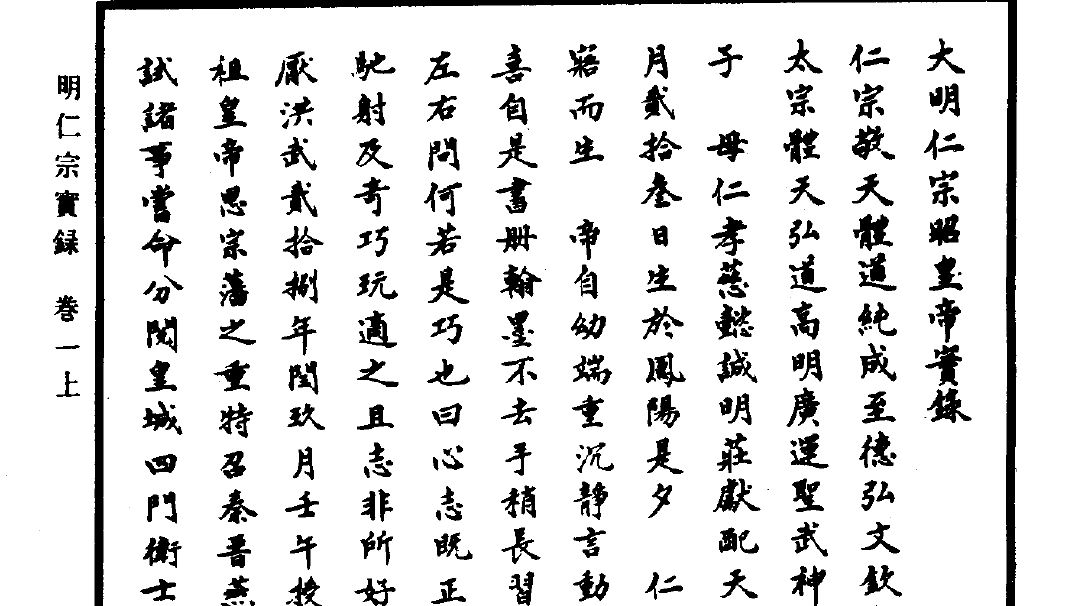 大明仁宗昭皇帝實錄
仁宗敬天體道純成至德弘文欽
太宗體天弘道高明廣運聖武神
子　母仁孝慈懿誠明莊獻配天
月貳拾叁日生於鳳陽是夕　仁
寤而生　帝自幼端重沉靜言動
喜自是書册翰墨不去手稍長習
左右問何若是巧也曰心志既正
馳射及奇巧玩適之且志非所好
厭洪武貳拾捌年閏玖月壬午授
祖皇帝思宗藩之重特召秦晋燕
試諸事嘗命分閱皇城四門衛士
明仁宗實録　卷一上